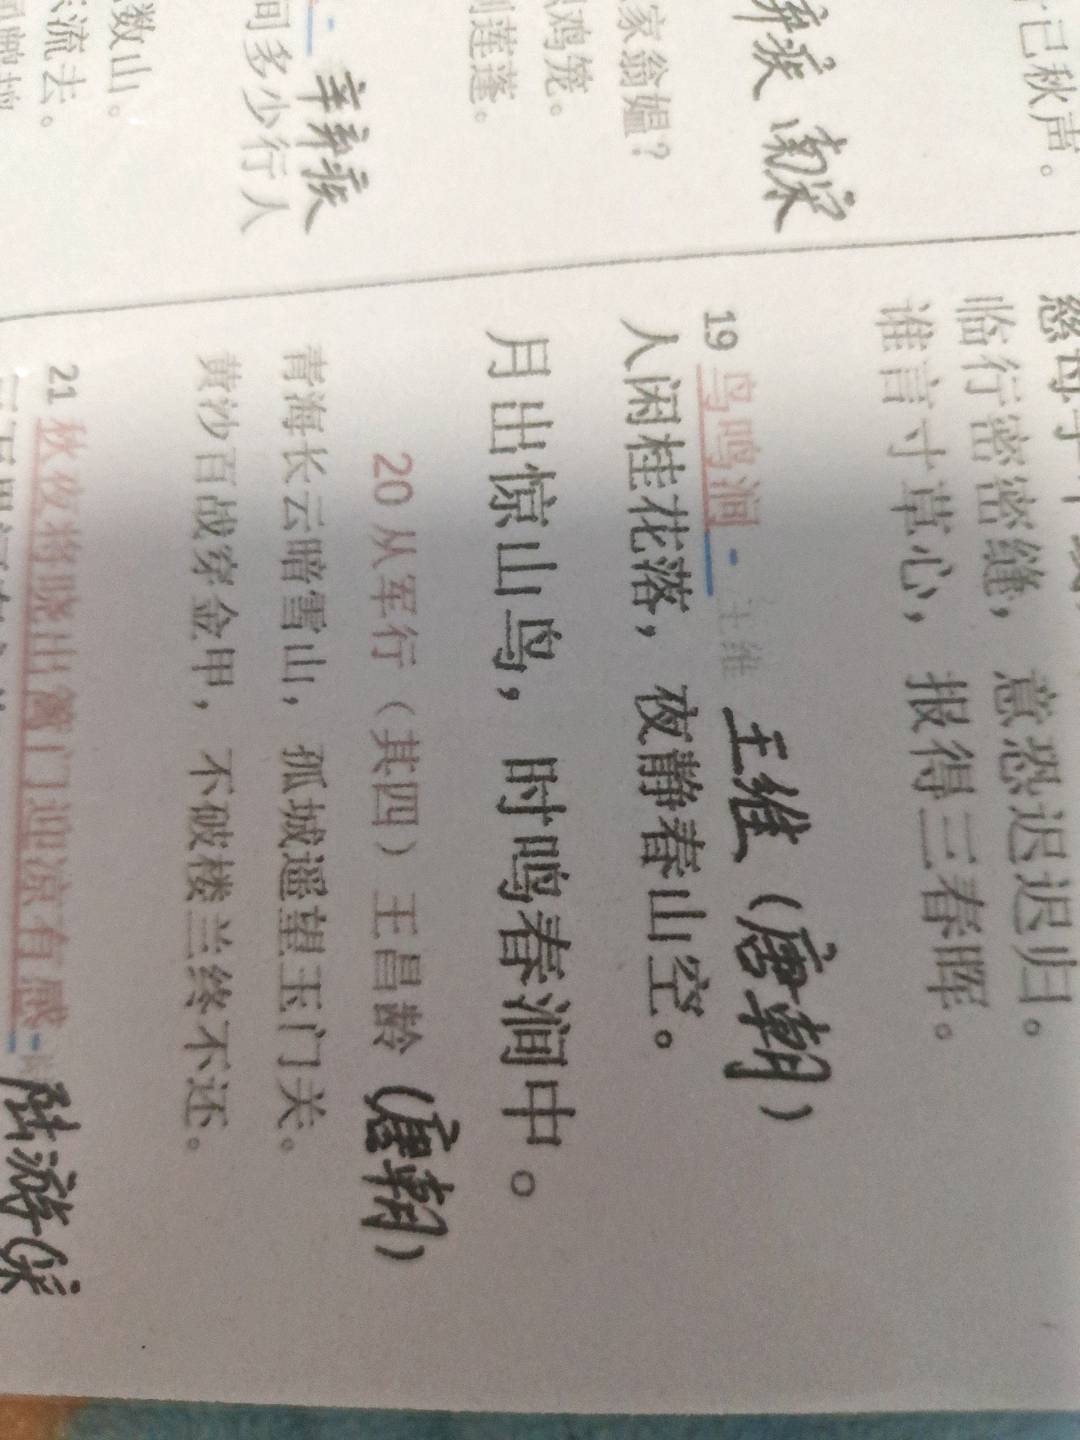 已秋声。
辛弃疾 南宋
家翁媪？
鸡笼。
莲蓬。
辛弃疾
间多少行人
数山。
流去。
慈母手中线，
临行密密缝， 意恐迟迟归。
谁言寸草心， 报得三春晖。
19 鸟鸣涧 - 王维 王维（唐朝）
人闲桂花落， 夜静春山空。
月出惊山鸟， 时鸣春涧中。
20 从军行（其四）王昌龄（唐朝）
青海长云暗雪山， 孤城遥望玉门关。
黄沙百战穿金甲， 不破楼兰终不还。
21 秋夜将晓出篱门迎凉有感 - 陆游